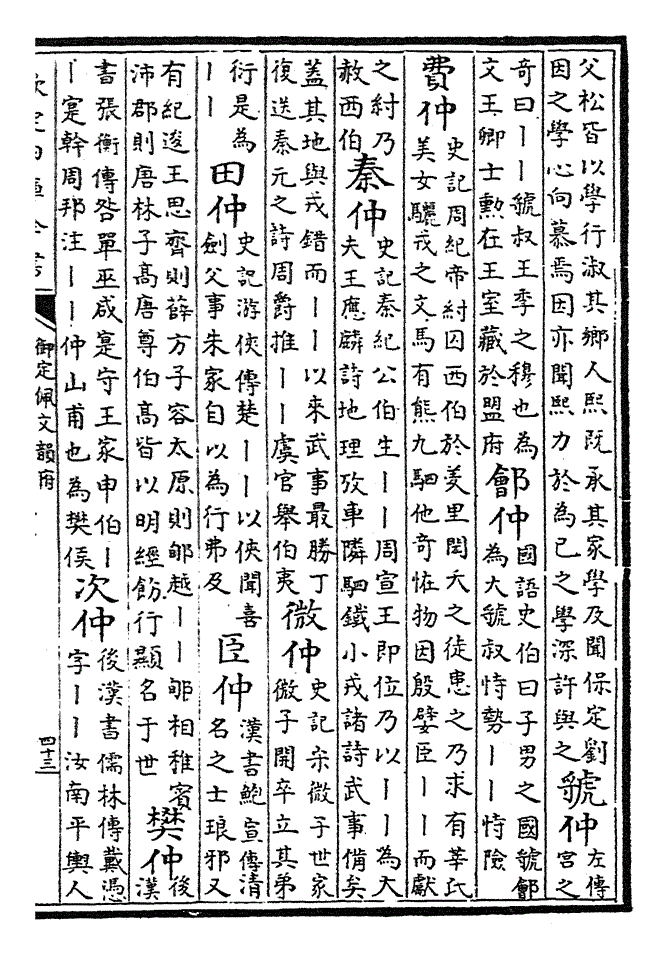 父松皆以學行淑其鄉人熙既承其家學及聞保定劉
因之學心向慕焉因亦聞熙力於為已之學深許與之
虢仲
左傳
宮之
奇曰丨丨虢叔王季之穆也為
文王卿士勲在王室藏於盟府
鄶仲
國語史伯曰子男之國虢鄶
為大虢叔恃勢丨丨恃險
費仲
史記周紀帝紂囚西伯於羑里閎夭之徒患之乃求有莘氏
美女驪戎之文馬有熊九駟他奇恠物因殷嬖臣丨丨而獻
之紂乃
赦西伯
秦仲
史記秦紀公伯生丨丨周宣王即位乃以丨丨為大
夫王應麟詩地理攷車隣駟鐵小戎諸詩武事備矣
蓋其地與戎錯而丨丨以來武事最勝丁
復送秦元之詩周爵推丨丨虞官舉伯夷
微仲
史記宋微子世家
微子開卒立其弟
衍是為
丨丨
田仲
史記游俠傳楚丨丨以俠聞喜
劍父事朱家自以為行弗及
臣仲
漢書鮑宣傳清
名之士琅邪又
有紀逡王思齊則薛方子容太原則郇越丨丨郇相稚賓
沛郡則唐林子高唐尊伯高皆以明經飭行顯名于世
樊仲
後
漢
書張衡傳咎單巫咸寔守王家申伯丨
丨寔幹周邦注丨丨仲山甫也為樊侯
次仲
後漢書儒林傳戴憑
字丨丨汝南平輿人
欽定四庫全書
御定佩文韻府
四十三